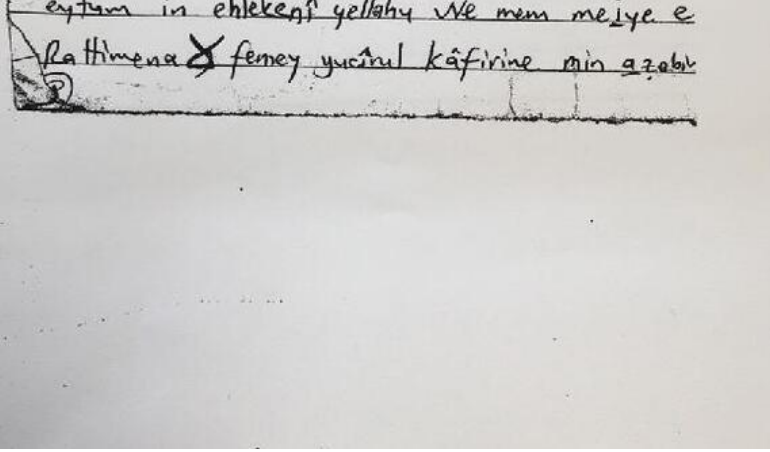 eytum in ehlekenî yellahu Ve mem meiye e
Rattimena X femey yucîrul kâfirine min azabil